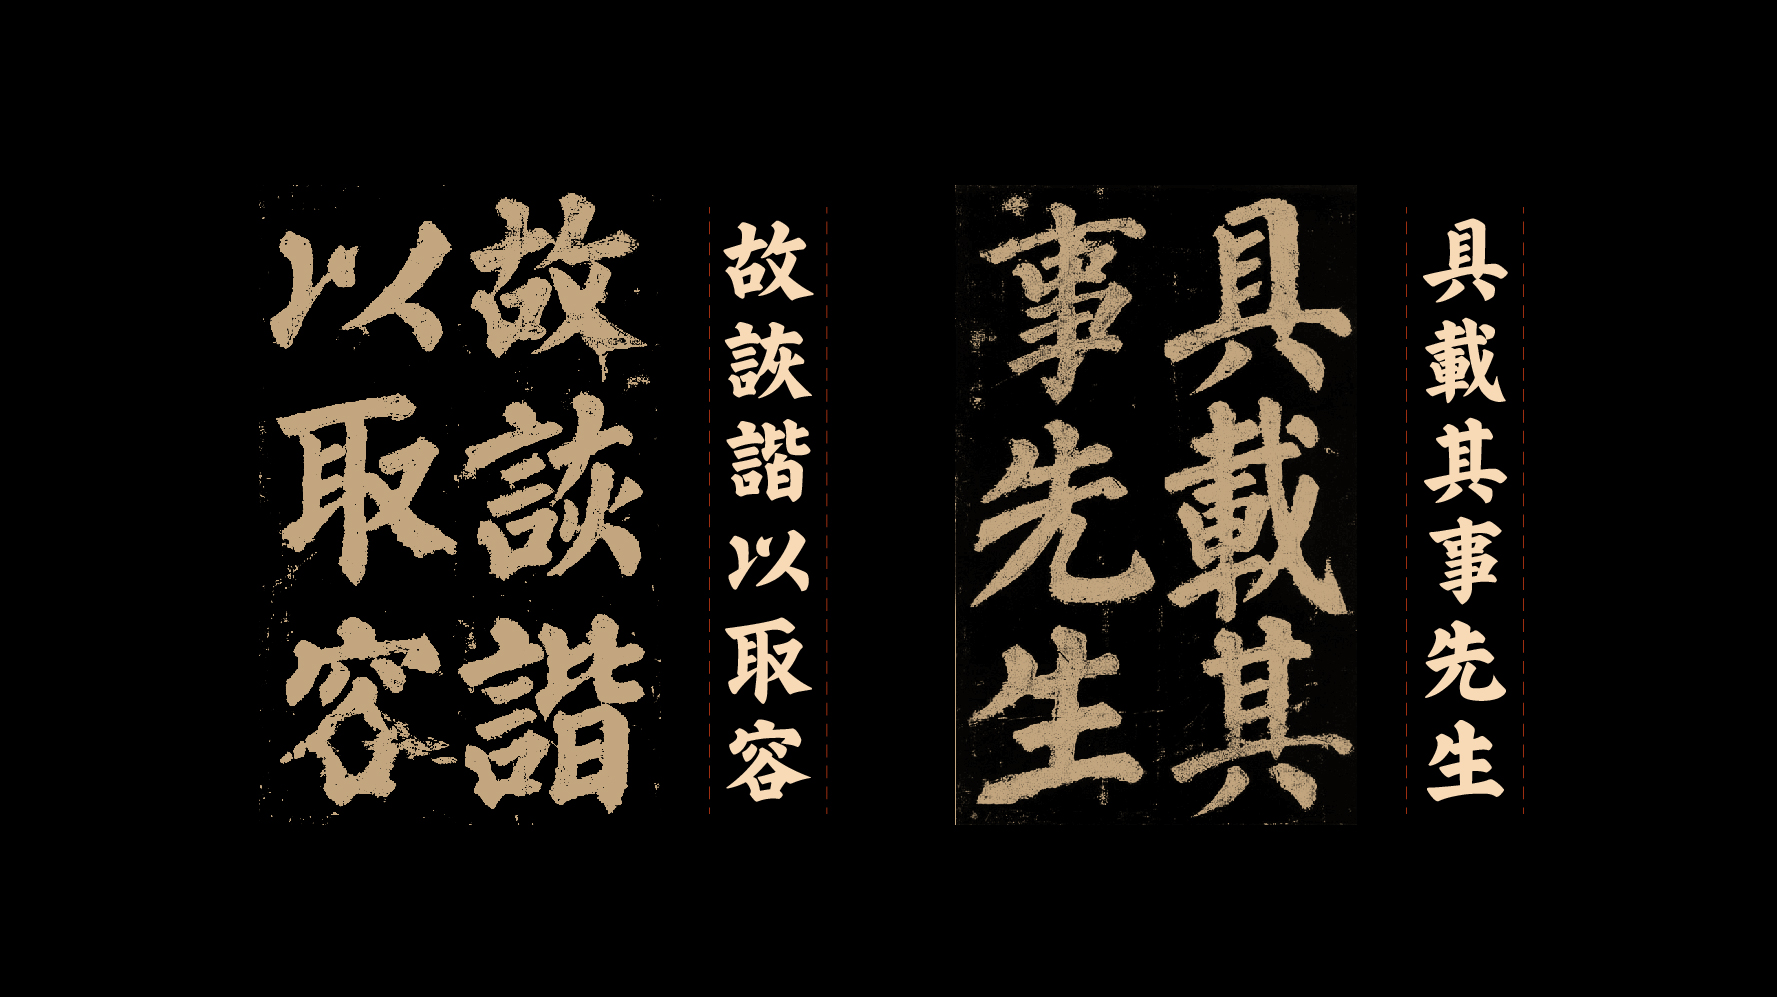 故詼諧
以取容
故詼諧以取容
具載其
事先生
具載其事先生